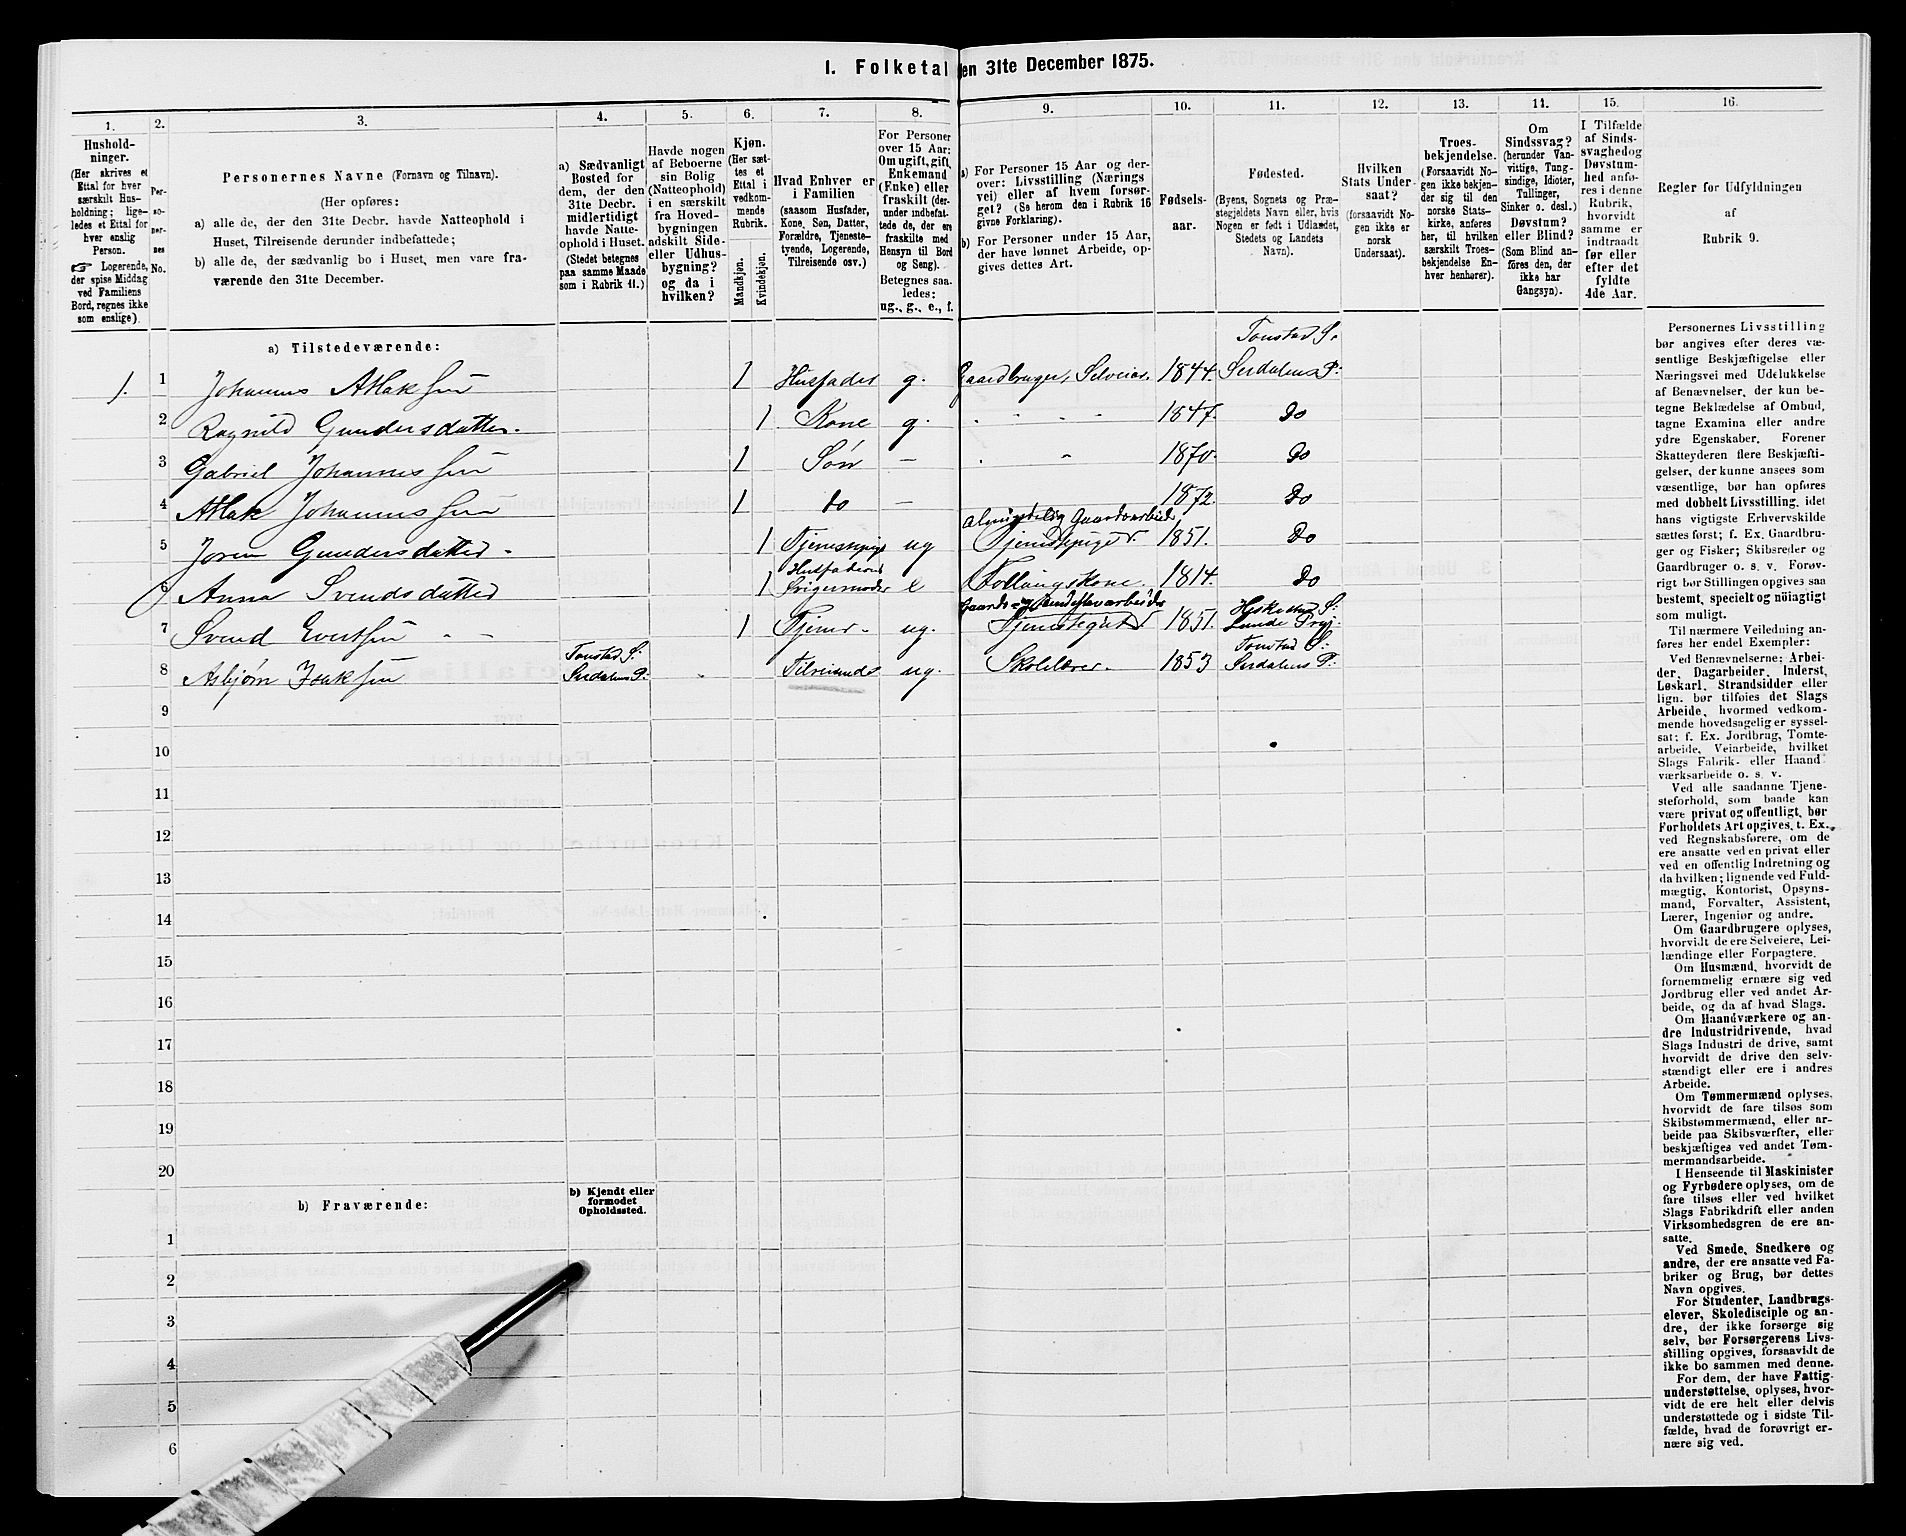 I. Folketal den 31te December 1875.
1.
Hushold-
ninger.
(Her skrives et
Ettal for hver
særskilt Hus-
holdning; lige-
ledes et Ettal for
hver enslig
Person.
☞ Logerende,
der spise Middag
ved Familiens
Bord, regnes ikke
som enslige).
2.
Per-
so-
ner-
nes
No.
3.
Personernes Navne (Fornavn og Tilnavn).
(Her opføres:
a) alle de, der den 31te Decbr. havde Natteophold i
Huset, Tilreisende derunder indbefattede;
b) alle de, der sædvanlig bo i Huset, men vare fra-
værende den 31te December.
4.
a) Sædvanligt
Bosted for
dem, der den
31te Decbr.
midlertidigt
havde Natte-
ophold i Huset.
(Stedet betegnes
paa samme Maade
som i Rubrik 11.)
5.
Havde nogen
af Beboerne
sin Bolig
(Natteophold)
i en særskilt
fra Hoved-
bygningen
adskilt Side-
eller Udhus-
bygning?
og da i
hvilken?
6.
Kjøn.
(Her sæt-
tes et
Ettal i
vedkom-
mende
Rubrik.
Mandkjøn.
Kvindekjøn.
7.
Hvad Enhver er
i Familien
(saasom Husfader,
Kone, Søn, Datter,
Forældre, Tjeneste-
tyende, Logerende,
Tilreisende osv.)
8.
For Personer
over 15 Aar:
Om ugift, gift,
Enkemand
(Enke) eller
fraskilt (der-
under indbefat-
tede de, der ere
fraskilte med
Hensyn til Bord
og Seng).
Betegnes saa-
ledes:
ug., g., e., f.
9.
a) For Personer 15 Aar og der-
over: Livsstilling (Nærings
vei) eller af hvem forsør-
get? (Se herom den i Rubrik 16
givne Forklaring).
b) For Personer under 15 Aar,
der have lønnet Arbeide, op-
gives dettes Art.
10.
Fødsels-
aar.
11.
Fødested.
(Byens, Sognets og Præ-
stegjeldets Navn eller, hvis
Nogen er født i Udlandet,
Stedets og Landets
Navn).
12.
Hvilken
Stats Under-
saat?
(forsaavidt No-
gen ikke er
norsk
Undersaat).
13.
Troes-
bekjendelse.
(Forsaavidt No-
gen ikke bekjen-
der sig til den
norske Stats-
kirke, anføres
her, til hvilken
særskilt Troes-
bekjendelse En-
hver henhører).
14.
Om
Sindssvag?
(herunder Van-
vittige, Tung-
sindige, Idioter,
Tullinger,
Sinker o. desl.)
Døvstum?
eller Blind?
(Som Blind an-
føres den, der
ikke har
Gangsyn).
15.
I Tilfælde
af Sinds-
svaghed og
Døvstum-
hed anfø-
res i denne
Rubrik,
hvorvidt
samme er
indtraadt
før eller
efter det
fyldte
4de Aar.
16.
Regler for Udfyldningen
af
Rubrik 9.
a) Tilstedeværende:
1. 1 Johannes Atlaksen 1 Husfader g. Gaardbruger, Selveier. 1844. Tonstad S. Sirdalens P:
2 Ragnild Gundersdatter. 1 Kone g. 1847. Do
3 Gabriel Johannessen 1 Søn – 1870. Do
4 Atlak Johannessen 1 do – 1872. Do
5 Joren Gundersdatter. 1 Tjenestepige ug almindelig Gaardsarbeid Tjenestepige 1851. Do
6 Anna Svendsdatter 1 Husfaderens Svigermoder e Follaugskone. 1814. Do
7 Svend Evertsen 1 Tjener. ug. Gaards- og Tjenestegut 1851. Heskestad S: Lunde Prgj.
8 Asbjørn Isaksen Tonstad S: Sirdalens P: Tilreisende ug. Skolelærer. 1853 Tonstad S: Sirdalens P:
9
10
11
12
13
14
15
16
17
18
19
20
b) Fraværende:
b) Kjendt eller
formodet
Opholdssted.
1
2
3
4
5
6
Personernes Livsstilling
bør angives efter deres væ-
sentlige Beskjæftigelse eller
Næringsvei med Udelukkelse
af Benævnelser, der kun be-
tegne Beklædelse af Ombud,
tagne Examina eller andre
ydre Egenskaber. Forener
Skatteyderen flere Beskjæfti-
gelser, der kunne ansees som
væsentlige, bør han opføres
med dobbelt Livsstilling, idet
hans vigtigste Erhvervskilde
sættes først; f. Ex. Gaardbru-
ger og Fisker; Skibsreder og
Gaardbruger o. s. v. Forøv-
rigt bør Stillingen opgives saa
bestemt, specielt og nöiagtigt
som muligt.
Til nærmere Veiledning an-
føres her endel Exempler:
Ved Benævnelserne: Arbei-
der, Dagarbeider, Inderst,
Løskarl, Strandsidder eller
lign. bør tilføies det Slags
Arbeide, hvormed vedkom-
mende hovedsagelig er syssel-
sat; f. Ex. Jordbrug, Tomte-
arbeide, Veiarbeide, hvilket
Slags Fabrik- eller Haand
værksarbeide o. s. v.
Ved alle saadanne Tjene-
steforhold, som baade kan
være privat og offentligt, bør
Forholdets Art opgives, t. Ex.
ved Regnskabsførere, om de
ere ansatte ved en privat eller
ved en offentlig Indretning og
da hvilken; lignende ved Fuld-
mægtig, Kontorist, Opsyns-
mand, Forvalter, Assistent,
Lærer, Ingeniør og andre.
Om Gaardbrugere oplyses,
hvorvidt de ere Selveiere, Lei-
lændinge eller Forpagtere.
Om Husmænd, hvorvidt de
fornemmelig ernære sig ved
Jordbrug eller ved andet Ar-
beide, og da af hvad Slags.
Om Haandværkere og an-
dre Industridrivende, hvad
Slags Industri de drive, samt
hvorvidt de drive den selv-
stændigt eller ere i andres
Arbeide.
Om Tømmermænd oplyses,
hvorvidt de fare tilsøs som
Skibstømmermænd, eller ar-
beide paa Skibsværfter, eller
beskjæftiges ved andet Tøm-
mermandsarbeide.
I Henseende til Maskinister
og Fyrbødere oplyses, om de
fare tilsøs eller ved hvilket
Slags Fabrikdrift eller anden
Virksomhedsgren de ere an-
satte.
Ved Smede, Snedkere og
andre, der ere ansatte ved Fa-
briker og Brug, bør dettes
Navn opgives.
For Studenter, Landbrugs-
elever, Skoledisciple og an-
dre, der ikke forsørge sig
selv, bør Forsørgerens Livs-
stilling opgives, forsaavidt de
ikke bo sammen med denne.
For dem, der have Fattig-
understøttelse, oplyses, hvor-
vidt de ere helt eller delvis
understøttede og i sidste Til-
fælde, hvad de forøvrigt er-
nære sig ved.